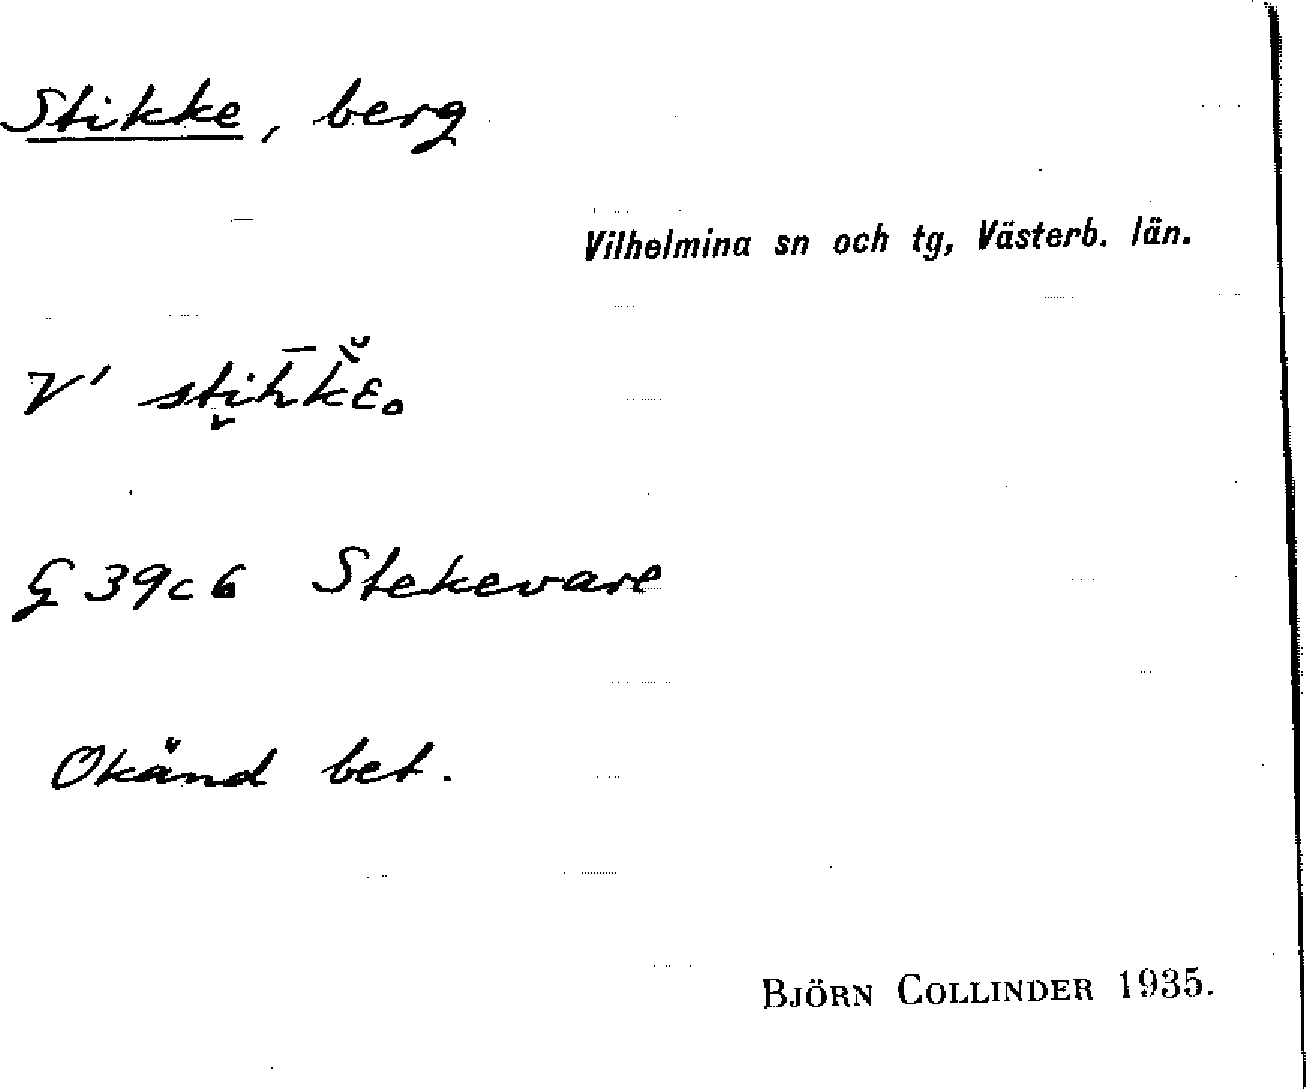 Stikke, berg
Vilhelmina sn och tg, Västerb. län.
V'
G 39c6 Stekevare
Okänd bet.
BJÖRN COLLINDER 1935.